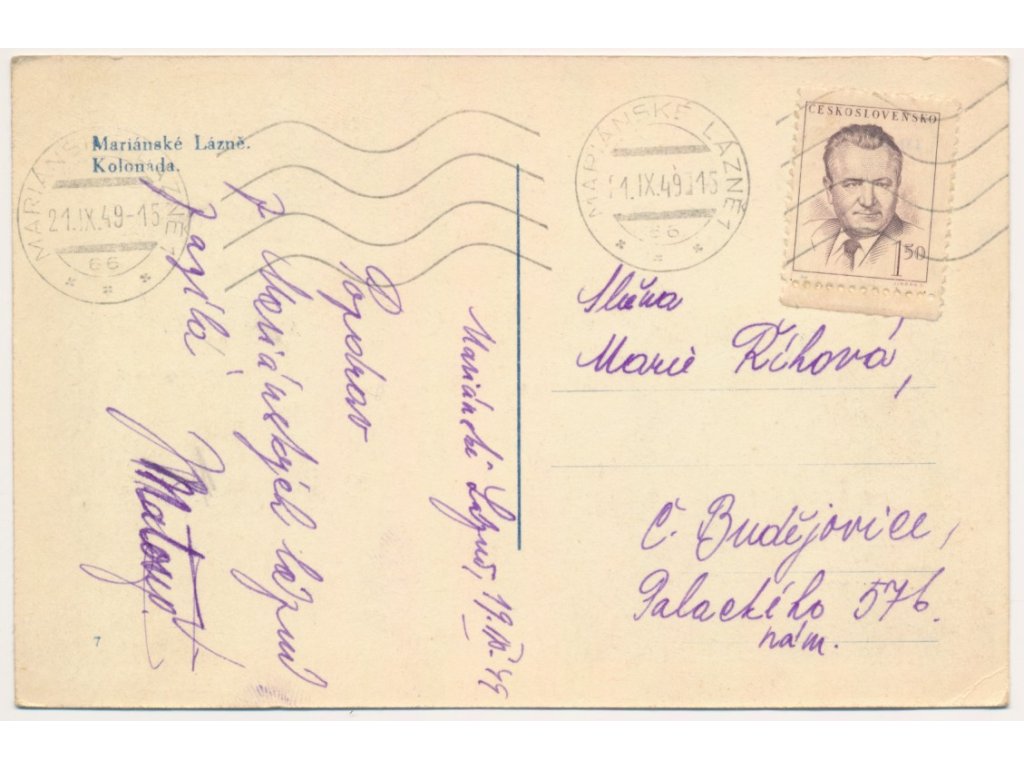 Mariánské Lázně.
Kolonáda.
MARIÁNSKÉ LÁZNĚ 1
21.IX.49-15
66
MARIÁNSKÉ LÁZNĚ 1
21.IX.49-15
66
ČESKOSLOVENSKO
1.50
Mariánské Lázně, 19.IX.49
Pozdrav
z Mariánských Lázní
zasílá
Matouš
Slečna
Marie Říhová,
Č. Budějovice,
Palackého 576.
nám.
7